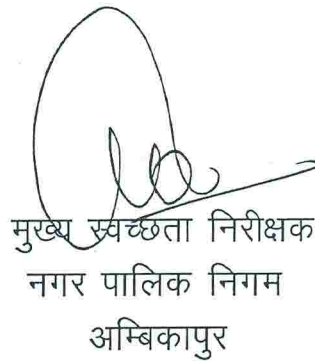 मुख्य स्वच्छता निरीक्षक
नगर पालिक निगम
अम्बिकापुर